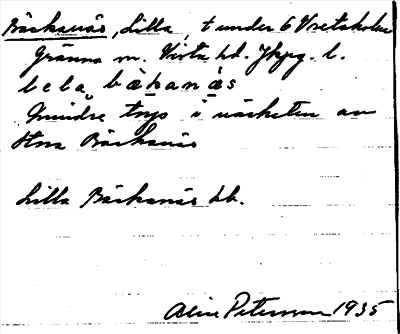 Bäckanäs, Lilla, t under 6 Vretaholm
Gränna m. Vista hd. Jkpg. l.
lela bäkanäs
Mindre torp i närheten av
Stora Bäckanäs
Lilla Bäckanäs hd.
Aline Petersson 1935